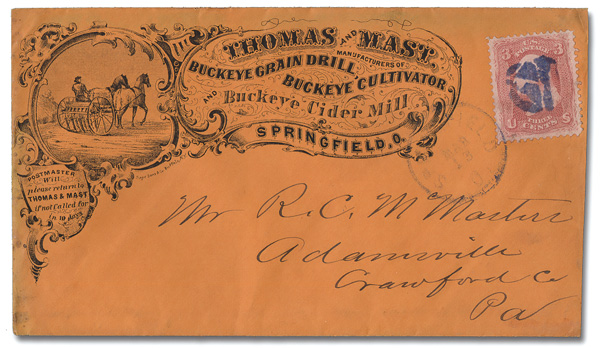 THOMAS AND MAST.
MANUFACTURERS OF
BUCKEYE GRAIN DRILL,
BUCKEYE CULTIVATOR
AND Buckeye Cider Mill
SPRINGFIELD, O.
POSTMASTER
Will
please return to
THOMAS & MAST
if not Called for
in 10 days
3 U.S. 3
POSTAGE
THREE
U CENTS S
Mr R. C. McMasters
Adamsville
Crawford Co
Pa